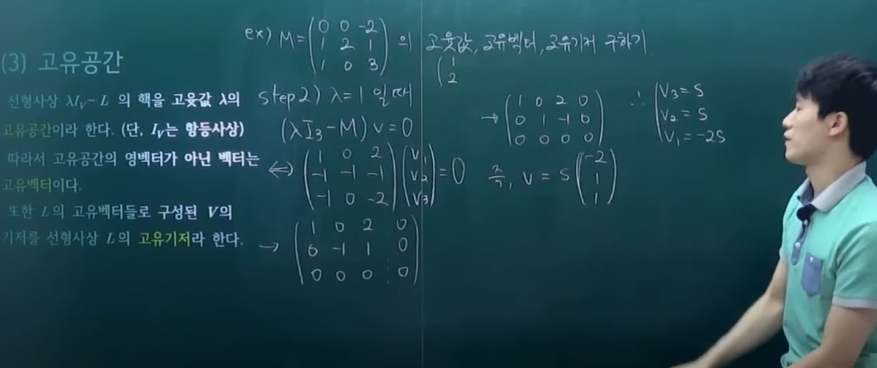 (3) 고유공간
선형사상 λI_V-L 의 핵을 고윳값 λ의
고유공간이라 한다. (단, I_V는 항등사상)
따라서 고유공간의 영벡터가 아닌 벡터는
고유벡터이다.
또한 L의 고유벡터들로 구성된 V의
기저를 선형사상 L의 고유기저라 한다.
ex) M = (0 0 -2
1 2 1
1 0 3) 의 고윳값, 고유벡터, 고유기저 구하기
(1
2
step2) λ=1 일때
(λI₃-M) v = 0
⇔ (1 0 2
-1 -1 -1
-1 0 -2) (v₁
v₂
v₃) = 0
→ (1 0 2 0
0 -1 1 0
0 0 0 0)
→ (1 0 2 0
0 1 -1 0
0 0 0 0)
∴ (v₃ = s
v₂ = s
v₁ = -2s
즉, v = s (-2
1
1)